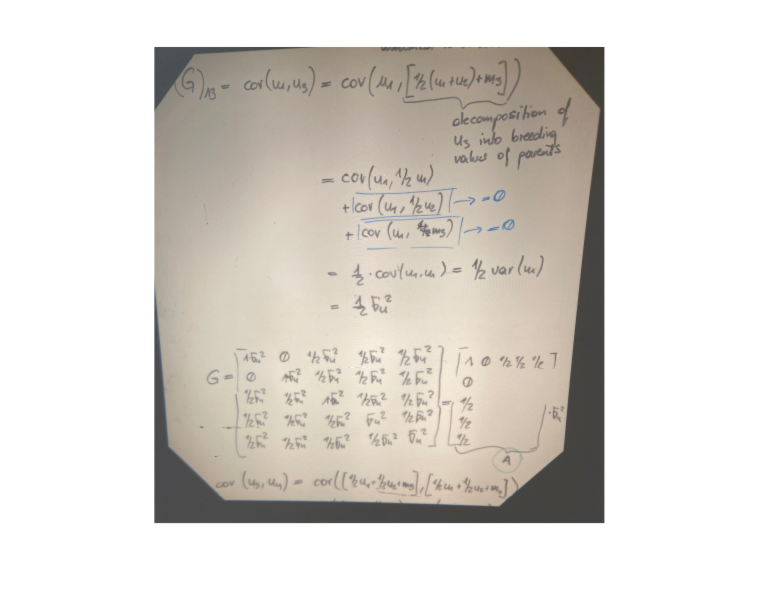 (G)₁₃ = cov(u₁,u₃) = cov(u₁, [½(u₁+u₂)+m₃])
decomposition of
u₃ into breeding
values of parents
= cov(u₁, ½ u₁)
+ cov(u₁, ½u₂) → = 0
+ cov(u₁, m₃) → = 0
= ½ · cov(u₁,u₁) = ½ var(u₁)
= ½ σu²
G = [ 1σu² 0 ½σu² ½σu² ½σu² ] [ 1 0 ½ ½ ½ ]
0 1σu² ½σu² ½σu² ½σu² 0
½σu² ½σu² 1σu² ½σu² ½σu² = ½ · σu²
½σu² ½σu² ½σu² σu² ½σu² ½
½σu² ½σu² ½σu² ½σu² σu² ½
A
cov(u₃, u₄) = cov([½u₁+½u₂+m₃], [½u₁+½u₂+m₄])